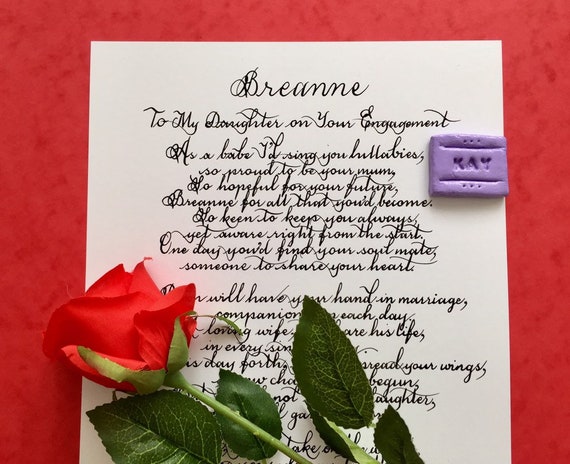 Breanne
To My Daughter on Your Engagement
As a babe I'd sing you lullabies,
so proud to be your mum,
So hopeful for your future,
Breanne for all that you'd become.
So keen to keep you always,
yet aware right from the start
One day you'd find your soul mate,
someone to share your heart.
KAY
will have your hand in marriage,
companion each day,
loving wife his life,
in every
is day forth, spread your wings,
begun,
not
take on the